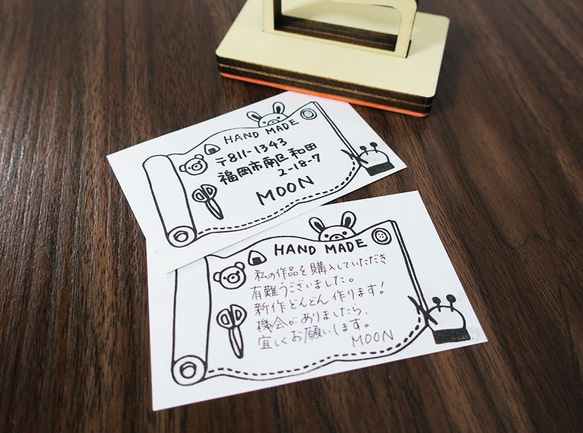 HAND MADE
〒811-1343
福岡市南区和田
2-18-7
MOON
HAND MADE
私の作品を購入していただき
有難うございました。
新作どんどん作ります!
機会がありましたら、
宜しくお願いします。
MOON